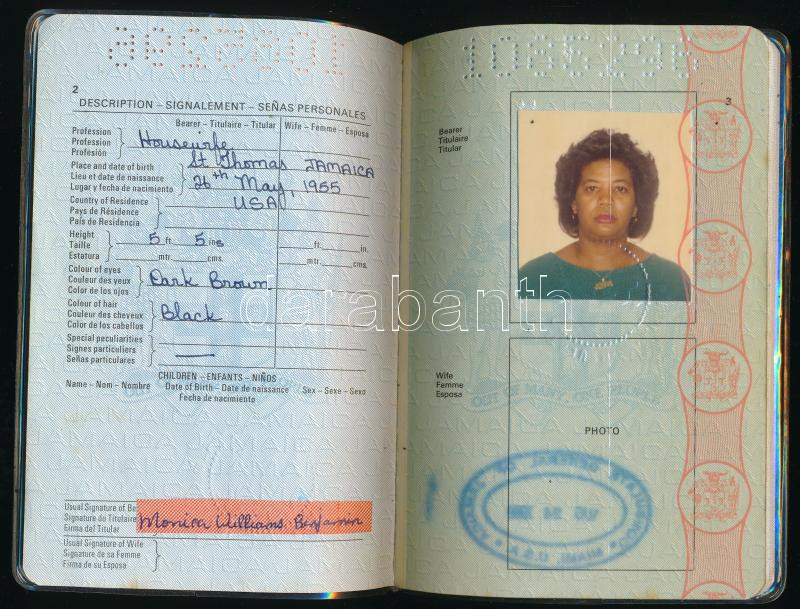 1086296
2
DESCRIPTION – SIGNALEMENT – SEÑAS PERSONALES
Bearer – Titulaire – Titular
Wife – Femme – Esposa
Profession
Profession
Profesión
Housewife
Place and date of birth
Lieu et date de naissance
Lugar y fecha de nacimiento
St Thomas JAMAICA
26th May, 1955
Country of Residence
Pays de Résidence
País de Residencia
USA
Height
Taille
Estatura
5 ft. 5 ins
mtr. cms.
ft. in.
mtr. cms.
Colour of eyes
Couleur des yeux
Color de los ojos
Dark Brown
Colour of hair
Couleur des cheveux
Color de los cabellos
Black
Special peculiarities
Signes particuliers
Señas particulares
CHILDREN – ENFANTS – NIÑOS
Name – Nom – Nombre
Date of Birth – Date de naissance
Fecha de nacimiento
Sex – Sexe – Sexo
Usual Signature of Be
Signature du Titulaire
Firma del Titular
Monica Williams-Benjamin
Usual Signature of Wife
Signature de sa Femme
Firma de su Esposa
1086296
3
Bearer
Titulaire
Titular
Wife
Femme
Esposa
OUT OF MANY, ONE PEOPLE
PHOTO
CONSULATE GENERAL OF JAMAICA
MIAMI U.S.A.
darabanth